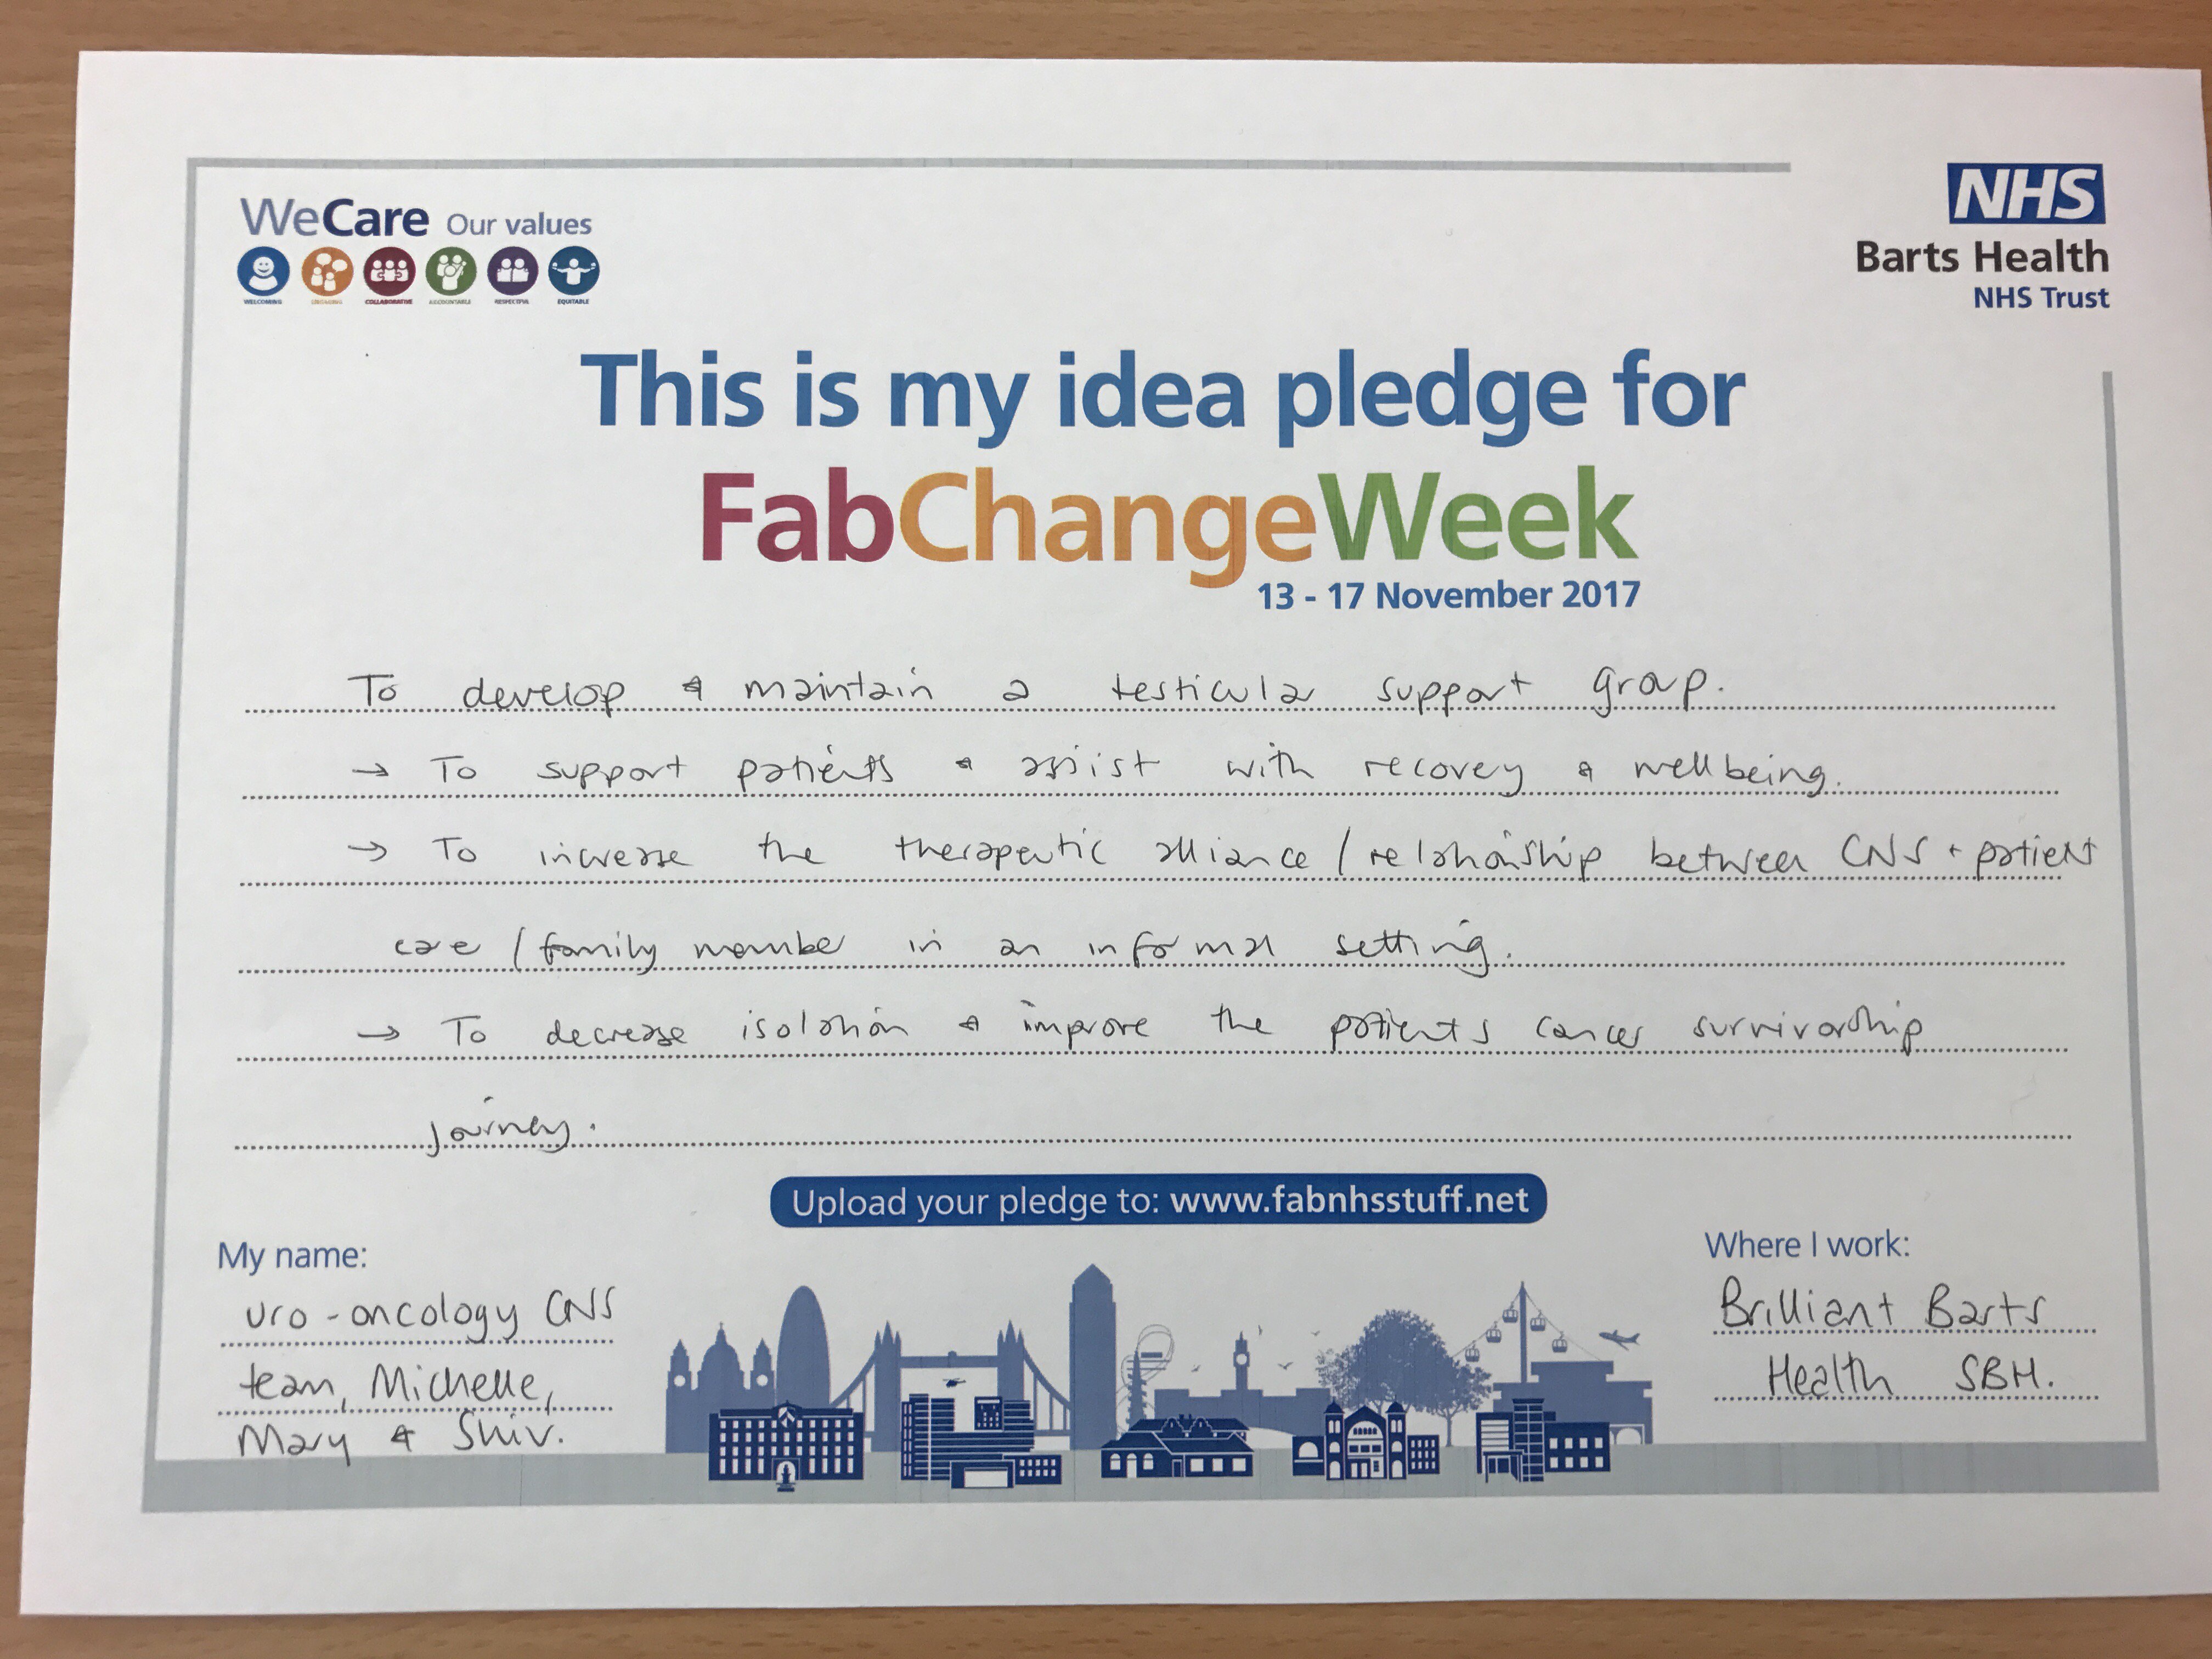 WeCare Our values
WELCOMING ENGAGING COLLABORATIVE ACCOUNTABLE RESPECTFUL EQUITABLE
NHS
Barts Health
NHS Trust
This is my idea pledge for
FabChangeWeek
13 - 17 November 2017
To develop & maintain a testicular support group.
→ To support patients & assist with recovery & wellbeing.
→ To increase the therapeutic alliance / relationship between CNS + patient
care / family member in an informal setting.
→ To decrease isolation & improve the patients cancer survivorship
journey.
Upload your pledge to: www.fabnhsstuff.net
My name:
uro-oncology CNS
team, Michelle,
Mary & Shiv.
Where I work:
Brilliant Barts
Health SBH.